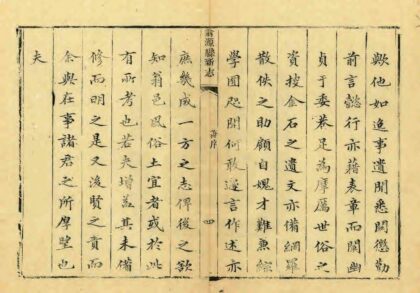 歟他如逸事遺聞悉關懲勸
前言懿行亦藉表章而闡幽
貞于委巷足為摩厲世俗之
資披金石之遺文亦備網羅
散佚之助顧自媿才難兼綜
學囿咫聞何敢遽言作述亦
翁源縣新志
序
四
庶幾成一方之志俾後之欲
知翁邑風俗土宜者或於此
有所考也若夫增益其未備
修而明之是又後賢之責而
余與在事諸君之所厚望也
夫